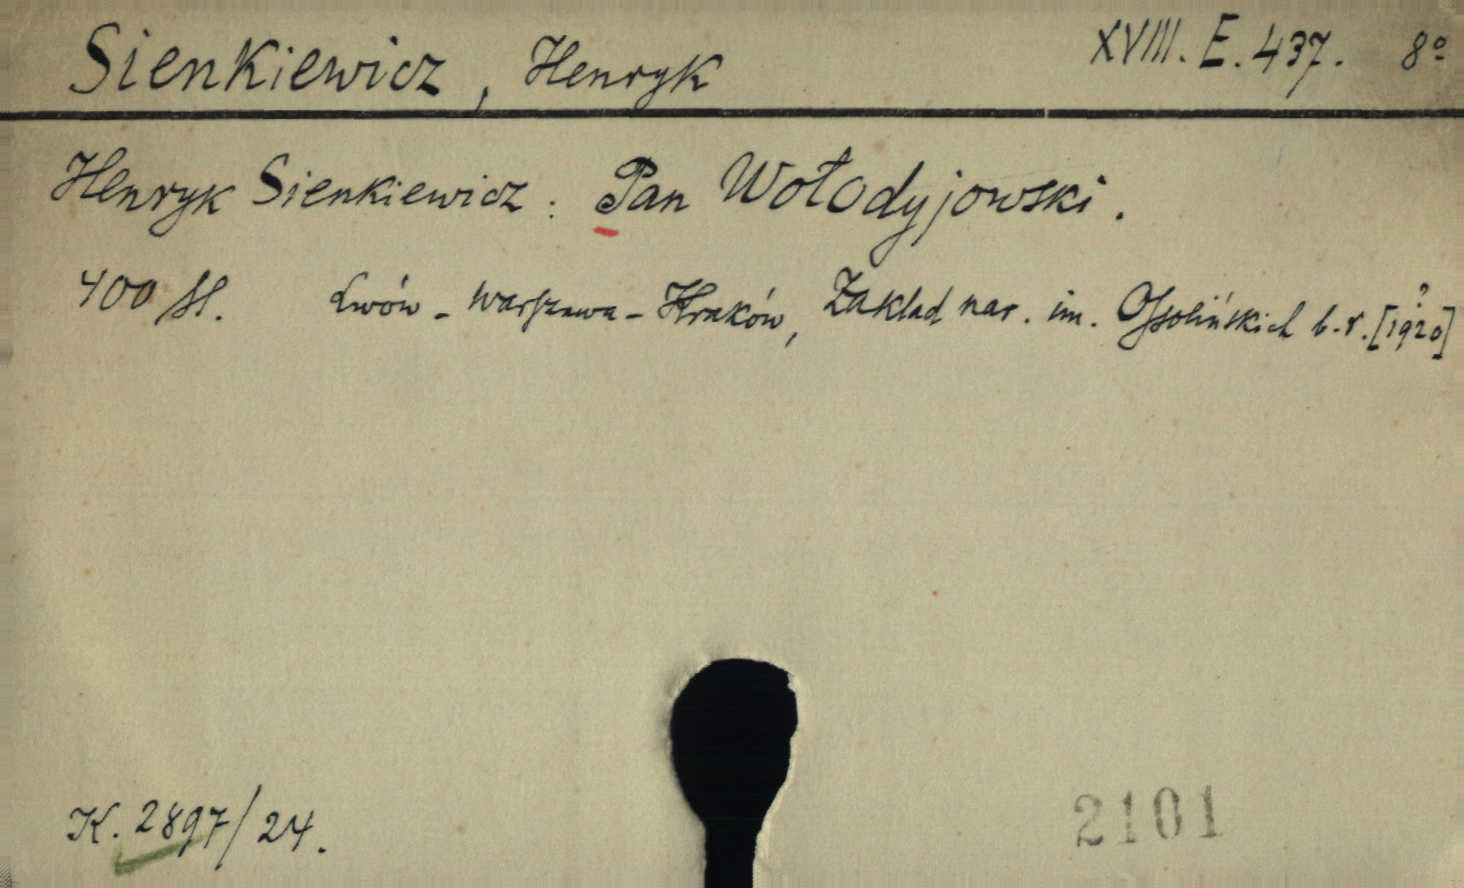 Sienkiewicz, Henryk XVIII. E. 437. 8º
Henryk Sienkiewicz: Pan Wołodyjowski.
400 St. Lwów - Warszawa - Kraków, Zakład nar. im. Ossolińskich b. r. [1920?]
K. 2897/24.
2101